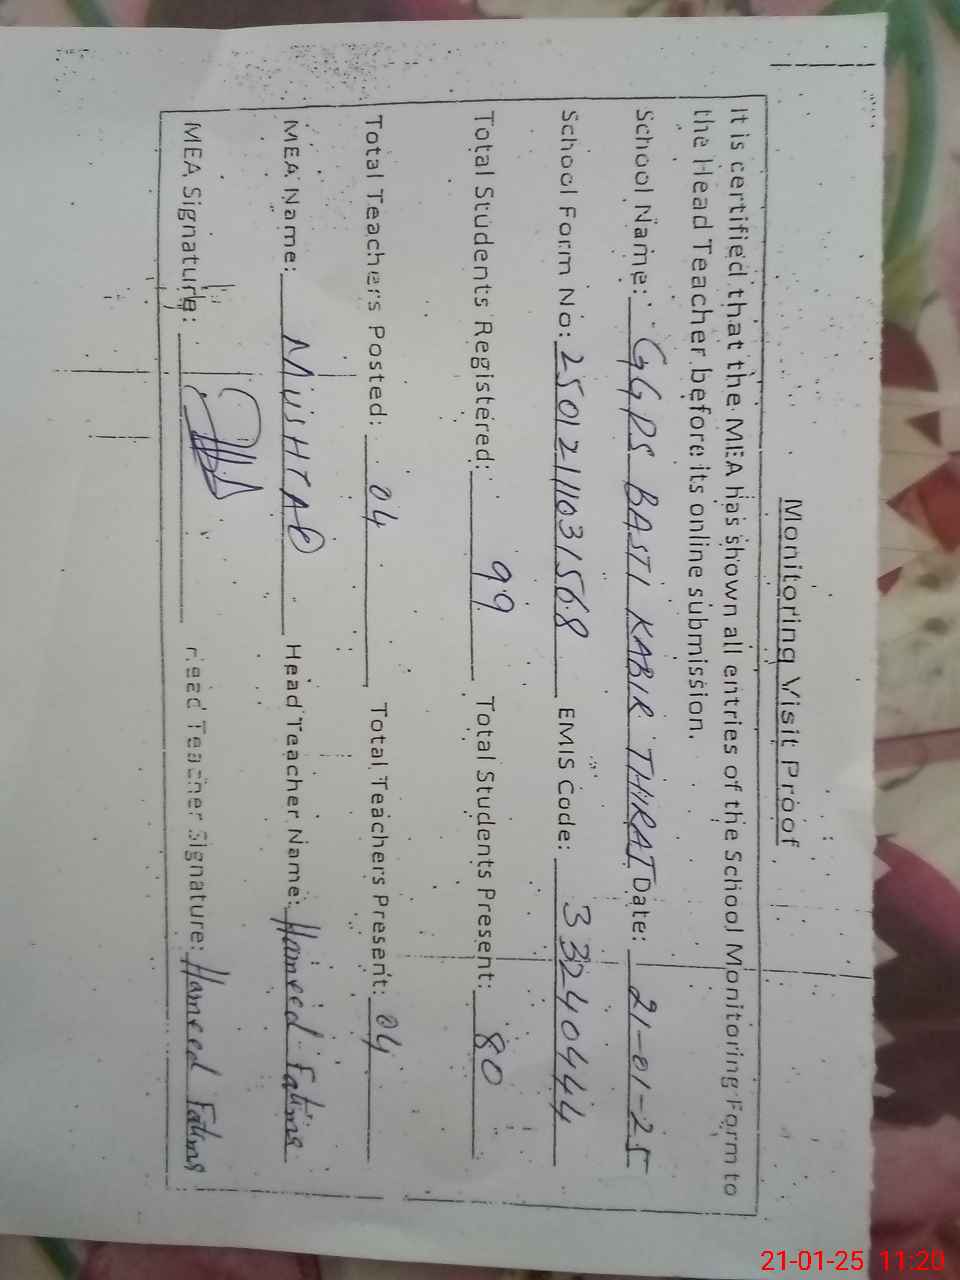 Monitoring Visit Proof
It is certified that the MEA has shown all entries of the School Monitoring Form to
the Head Teacher before its online submission.
School Name: GGPS BASTI KABIR THIRAT Date: 21-01-25
School Form No: 2501211031568 EMIS Code: 33240444
Total Students Registered: 99 Total Students Present: 80
Total Teachers Posted: 04 Total Teachers Present: 04
MEA Name: MUSHTAQ Head Teacher Name: Hameed Fatima
MEA Signature: Head Teacher Signature: Hameed Fatima
21-01-25 11:20